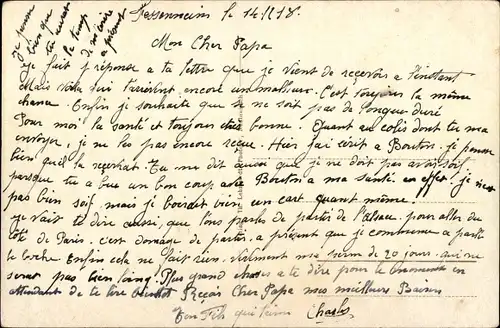 Fessenheim le 14.11.18.
Je pense
bien que
tu auras
le temps
de m'écrire
a présent
Mon Cher Papa
Je fait réponse a ta lettre que je vient de reçevoir a l'instant
Mais voila encore un malheur. C'est toujours la même
chance. Enfin je souhaite que se ne soit pas de longue duré
Pour moi la santé et toujour très bonne. Quant au colis dont tu ma
envoyer, je ne les pas encore reçue. Hier j'ai écrit a Bouton. Je pense
bien qu'il le recevrat. Tu me dit aussi que je ne doit pas avoir soif
parsque tu a bue un bon coup avec Bouton a ma santé en effet. Je n'ai
pas bien soif, mais je boirait bien un cart quant même.
Je vait te dire aussi, que l'ons parles de partir de l'Alsace. pour aller du
côté de Paris, c'est domage de partir, a présent que je commence a parler
le boche. Enfin cela ne fait rien. Vivement ma perm de 20 jours. qui ne
serat pas bien long. Plus grand choses a te dire pour le moment en
attendant de te lire bientot Reçois Cher Papa mes meilleurs Baisers
Ton Fils qui t'aime Charles